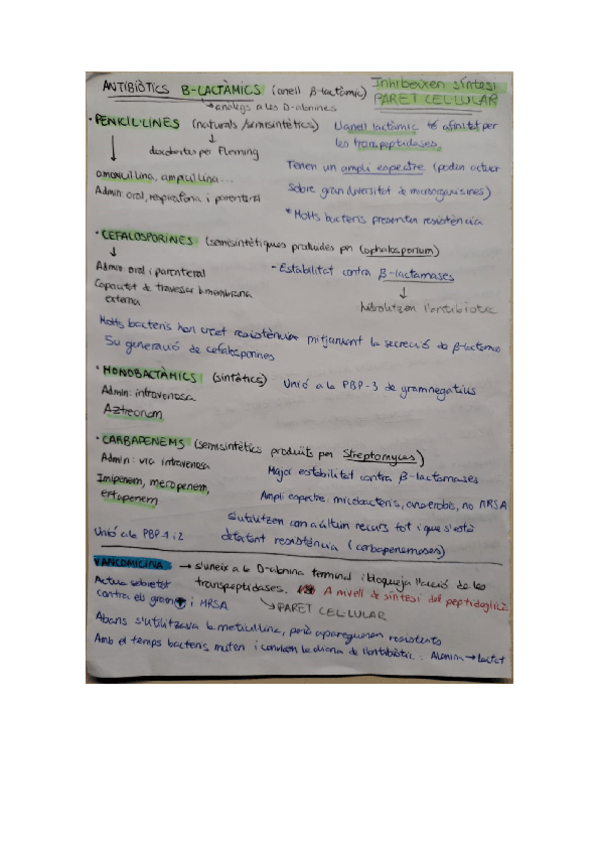 ANTIBIÒTICS β-LACTÀMICS (anell β-lactàmic) Inhibeixen síntesi
PARET CEL·LULAR
→ anàlegs a les D-alanines
• PENICIL·LINES (naturals/semisintètics)
L'anell lactàmic té afinitat per
les transpeptidases.
descobertes per Fleming
amoxicil·lina, ampicil·lina...
Admin: oral, respiratoria i parenteral
Tenen un ampli espectre (poden actuar
sobre gran diversitat de microorganismes)
* Molts bacteris presenten resistència
• CEFALOSPORINES (semisintètiques produïdes per Cephalosporium)
Admin: oral i parenteral
Capacitat de travessar la membrana
externa
- Estabilitat contra β-lactamases
hidrolitzen l'antibiòtic
Molts bacteris han creat resistència mitjançant la secreció de β-lactamases
5a generació de cefalosporines
• MONOBACTÀMICS (sintètics)
Admin: intravenosa
Aztreonam
Unió a la PBP-3 de gramnegatius
• CARBAPENEMS (semisintètics produïts per Streptomyces)
Admin: via intravenosa
Imipenem, meropenem,
ertapenem
Major estabilitat contra β-lactamases
Ampli espectre: micobacteris, anaerobis, no MRSA
S'utilitzen com a últim recurs tot i que s'està
detectant resistència (carbapenemases)
Unió a la PBP-1 i 2
VANCOMICINA → s'uneix a la D-alanina terminal i bloqueja l'acció de les
transpeptidases. A nivell de síntesi del peptidoglicà
Actua sobretot
contra els gram+ i MRSA
→ PARET CEL·LULAR
Abans s'utilitzava la meticil·lina, però aparegueren resistents
Amb el temps bacteris muten i canvien la diana de l'antibiòtic: Alanina → lactat